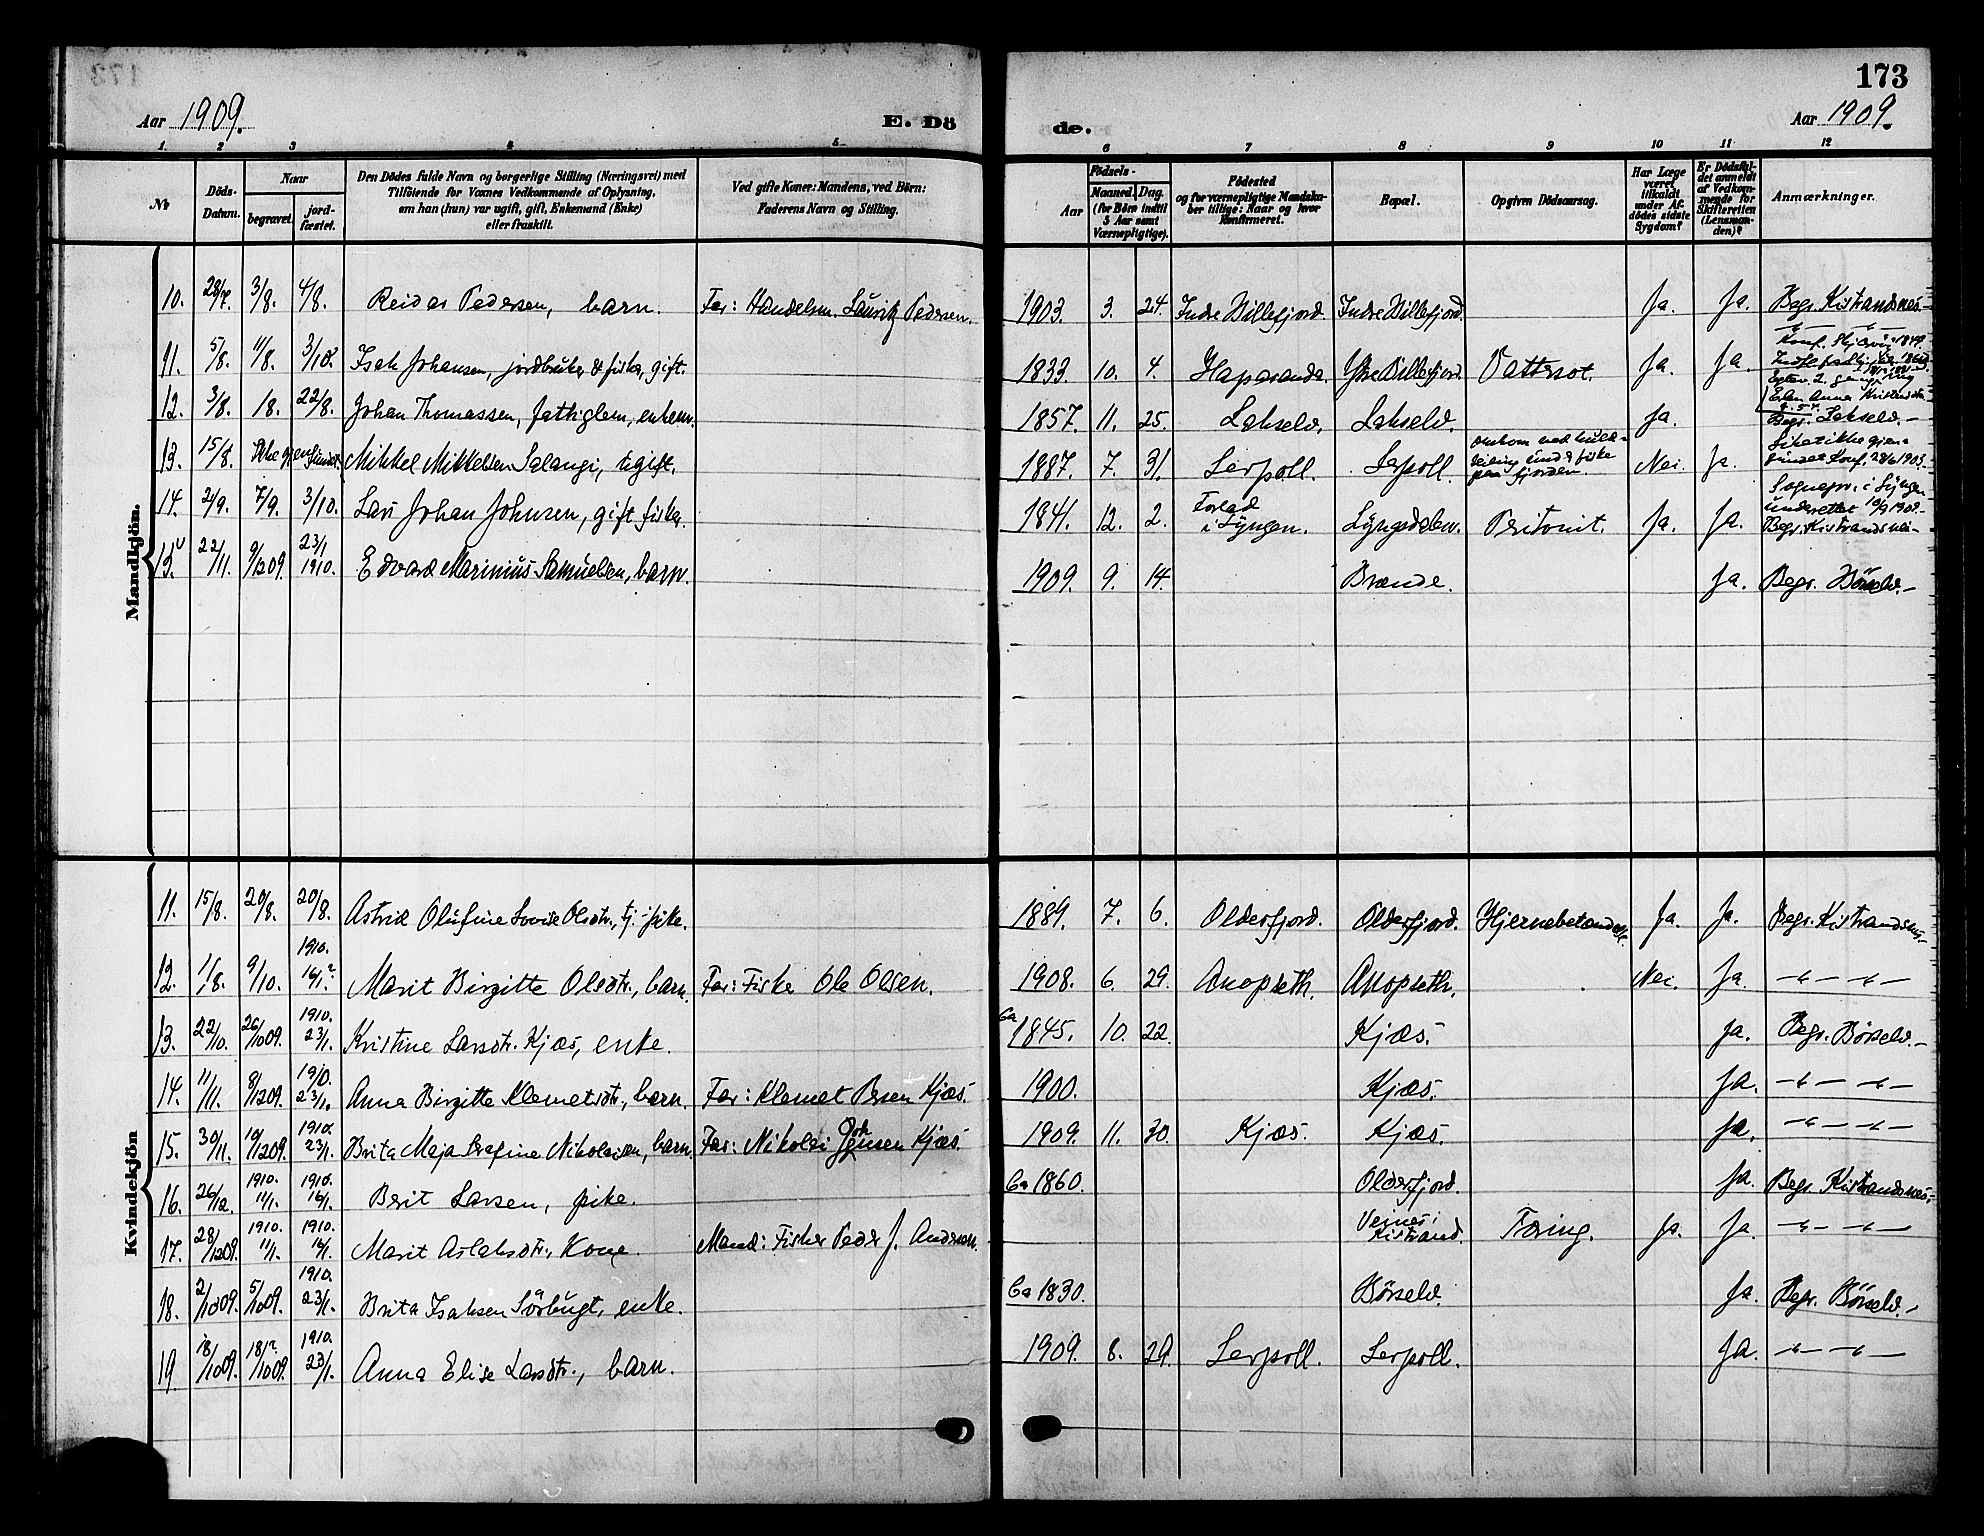 173
Aar 1909.
E. Dö
de.
Aar 1909.
1. 2 3 4 5.
6 7 8 9 10 11 12
No
Döds-Datum.
Naar
begravet.
jord-fæstet.
Den Dödes fulde Navn og borgerlige Stilling (Næringsvei) med
Tilföiende for Voxnes Vedkommende af Oplysning,
om han (hun) var ugift, gift, Enkemand (Enke)
eller fraskilt.
Ved gifte Koner: Mandens, ved Börn:
Faderens Navn og Stilling.
Födsels-
Aar
Maaned. Dag.
(for Börn indtil
5 Aar samt
Værnepligtige).
Födested
og for værnepligtige Mandska-
ber tillige: Naar og hvor
Konfirmeret.
Bopæl.
Opgiven Dödsaarsag.
Har Læge
været
tilkaldt
under Af-
dödes sidste
Sygdom?
Er Dödsfal-
det anmeldt
af Vedkom-
mende for
Skifteretten
(Lensman-
den)?
Anmærkninger.
Mandkjön.
10. 28/7. 3/8. 4/8. Reidar Pedersen, barn. Far: Handelsm. Lauritz Pedersen. 1903. 3. 24. Indre Billefjord. Indre Billefjord. Ja. Ja. Begr. Kistrandsnes
11. 5/8. 11/8. 3/10. Isak Johansen, jordbruker & fisker, gift. 1833. 10. 4. Haparanda. Ytre Billefjord. Vattersot. Ja. Ja.
12. 3/8. 18. 22/8. Johan Thomassen, fattiglem, enkem. 1857. 11. 25. Lakselv. Lakselv. Ja. Begr. Lakselv.
13. 15/8. Ikke gjenfundet Mikkel Mikkelsen Salangi, ugift. 1887. 7. 31. Lerpoll. Lerpoll. Omkom ved kuld-seiling under fiske paa fjorden Nei. Ja. Liket ikke gjen-fundet Konf. 28/6 1903.
14. 2/9. 7/9. 3/10. Lars Johan Johnsen, gift fisker. 1841. 12. 2. i Lyngen. Lyngsdalen. Peritonit. Ja. Ja. Sognepr. i Lyngen underrettet 10/9 1909. Begr. Kistrandsnes
15. 22/11. 9/12 09. 23/1 1910. Edvard Marinius Samuelsen, barn. 1909. 9. 14. Brænde. Ja. Begr. Börselv.
Kvindekjön
11. 15/8. 20/8. 20/8. Astrid Olufine Lovise Olsdtr., tj. pike. 1889. 7. 6. Olderfjord. Olderfjord. Hjernebetændelse. Ja. Ja. Begr. Kistrandsnes
12. 1/8. 9/10. 1910. 16/1. Marit Birgitte Olsdtr., barn. Far: Fisker Ole Olsen. 1908. 6. 29. Anopseth. Anopseth. Nei. Ja. — " — " —
13. 22/10. 26/10 09. 1910. 23/1. Kristine Larsdtr. Kjæs, enke. Ca 1845. 10. 22. Kjæs. Ja. Begr. Börselv.
14. 11/11. 8/12 09. 1910. 23/1. Anna Birgitte Klemetsdtr., barn. Far: Klemet Persen Kjæs. 1900. Kjæs. Ja. — " — " —
15. 30/11. 10/12 09. 1910. 23/1. Brita Maja Serafine Nikolaisen, barn. Far: Nikolai Kjæs. 1909. 11. 30. Kjæs. Kjæs. Ja. — " — " —
16. 26/12. 1910. 11/1. 1910. 16/1. Berit Larsen, pike. Ca 1860. Olderfjord. Ja. Begr. Kistrandsnes.
17. 28/12 09. 1910. 11/1. 1910. 16/1. Marit Aslaksdtr., Kone. Mand: Fisker Peder J. Andersen. Veines i Kistrand. Tæring. Ja. Ja. — " — " —
18. 2/10 09. 5/10 09. 1910. 23/1. Brita Isaksen Sörbugt, enke. Ca 1830. Börselv. Ja. Begr. Börselv.
19. 18/10 09. 18/10 09. 1910. 23/1. Anna Elise Larsdtr., barn. 1909. 8. 29. Lerpoll. Lerpoll. Ja. — " — " —